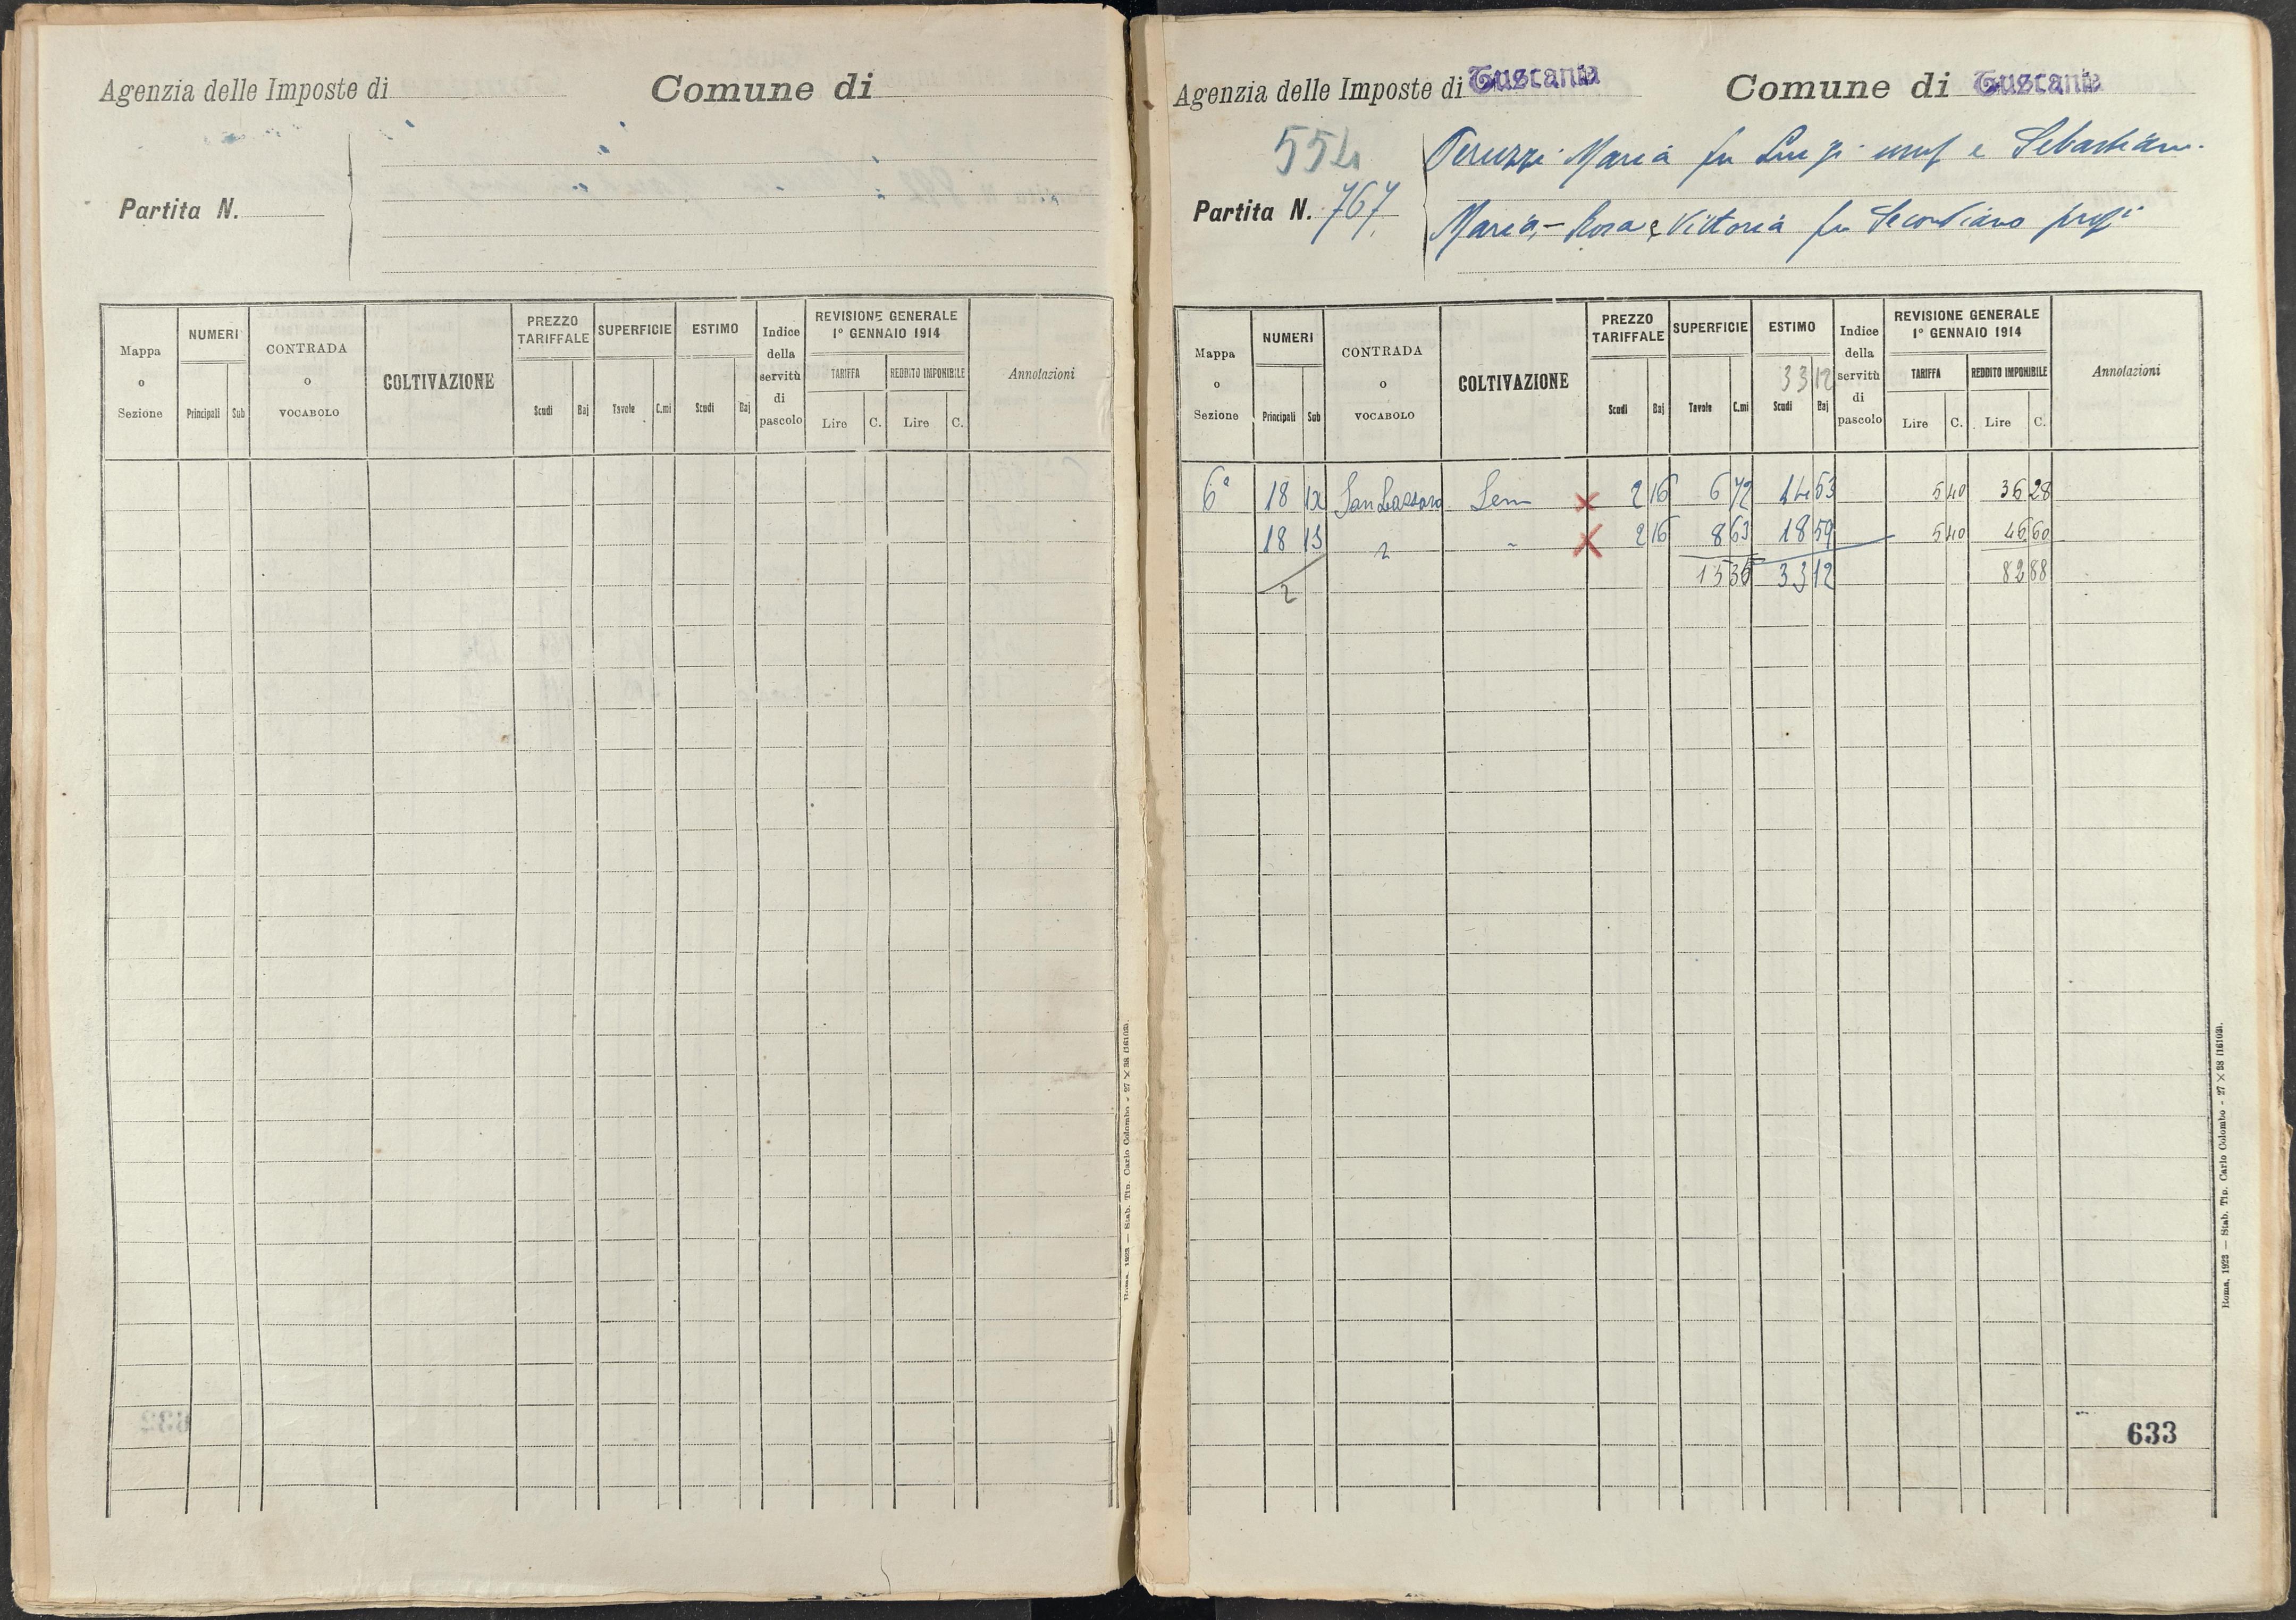 Agenzia delle Imposte di
Comune di
Partita N.
Mappa o Sezione
NUMERI
Principali
Sub
CONTRADA o VOCABOLO
COLTIVAZIONE
PREZZO TARIFFALE
Scudi
Baj
SUPERFICIE
Tavole
C.mi
ESTIMO
Scudi
Baj
Indice della servitù di pascolo
REVISIONE GENERALE
1° GENNAIO 1914
TARIFFA
REDDITO IMPONIBILE
Lire
C.
Lire
C.
Annotazioni
Roma, 1923 — Stab. Tip. Carlo Colombo - 27 × 38 (16103).
Agenzia delle Imposte di Tuscania
Comune di Tuscania
554
Partita N. 767
Peruzzi Maria fu Luigi usuf e Sebastiano
Maria, - Rosa e Vittoria fu Secondiano propi
Mappa o Sezione
NUMERI
Principali
Sub
CONTRADA o VOCABOLO
COLTIVAZIONE
PREZZO TARIFFALE
Scudi
Baj
SUPERFICIE
Tavole
C.mi
ESTIMO
33 12
Scudi
Baj
Indice della servitù di pascolo
REVISIONE GENERALE
1° GENNAIO 1914
TARIFFA
REDDITO IMPONIBILE
Lire
C.
Lire
C.
Annotazioni
6a 18 12 San Lazzaro Sem × 2 16 6 72 14 53 5 40 36 28
18 13 " " × 2 16 8 63 18 59 5 40 46 60
2 15 35 33 12 82 88
633
Roma, 1923 — Stab. Tip. Carlo Colombo - 27 × 38 (16103).